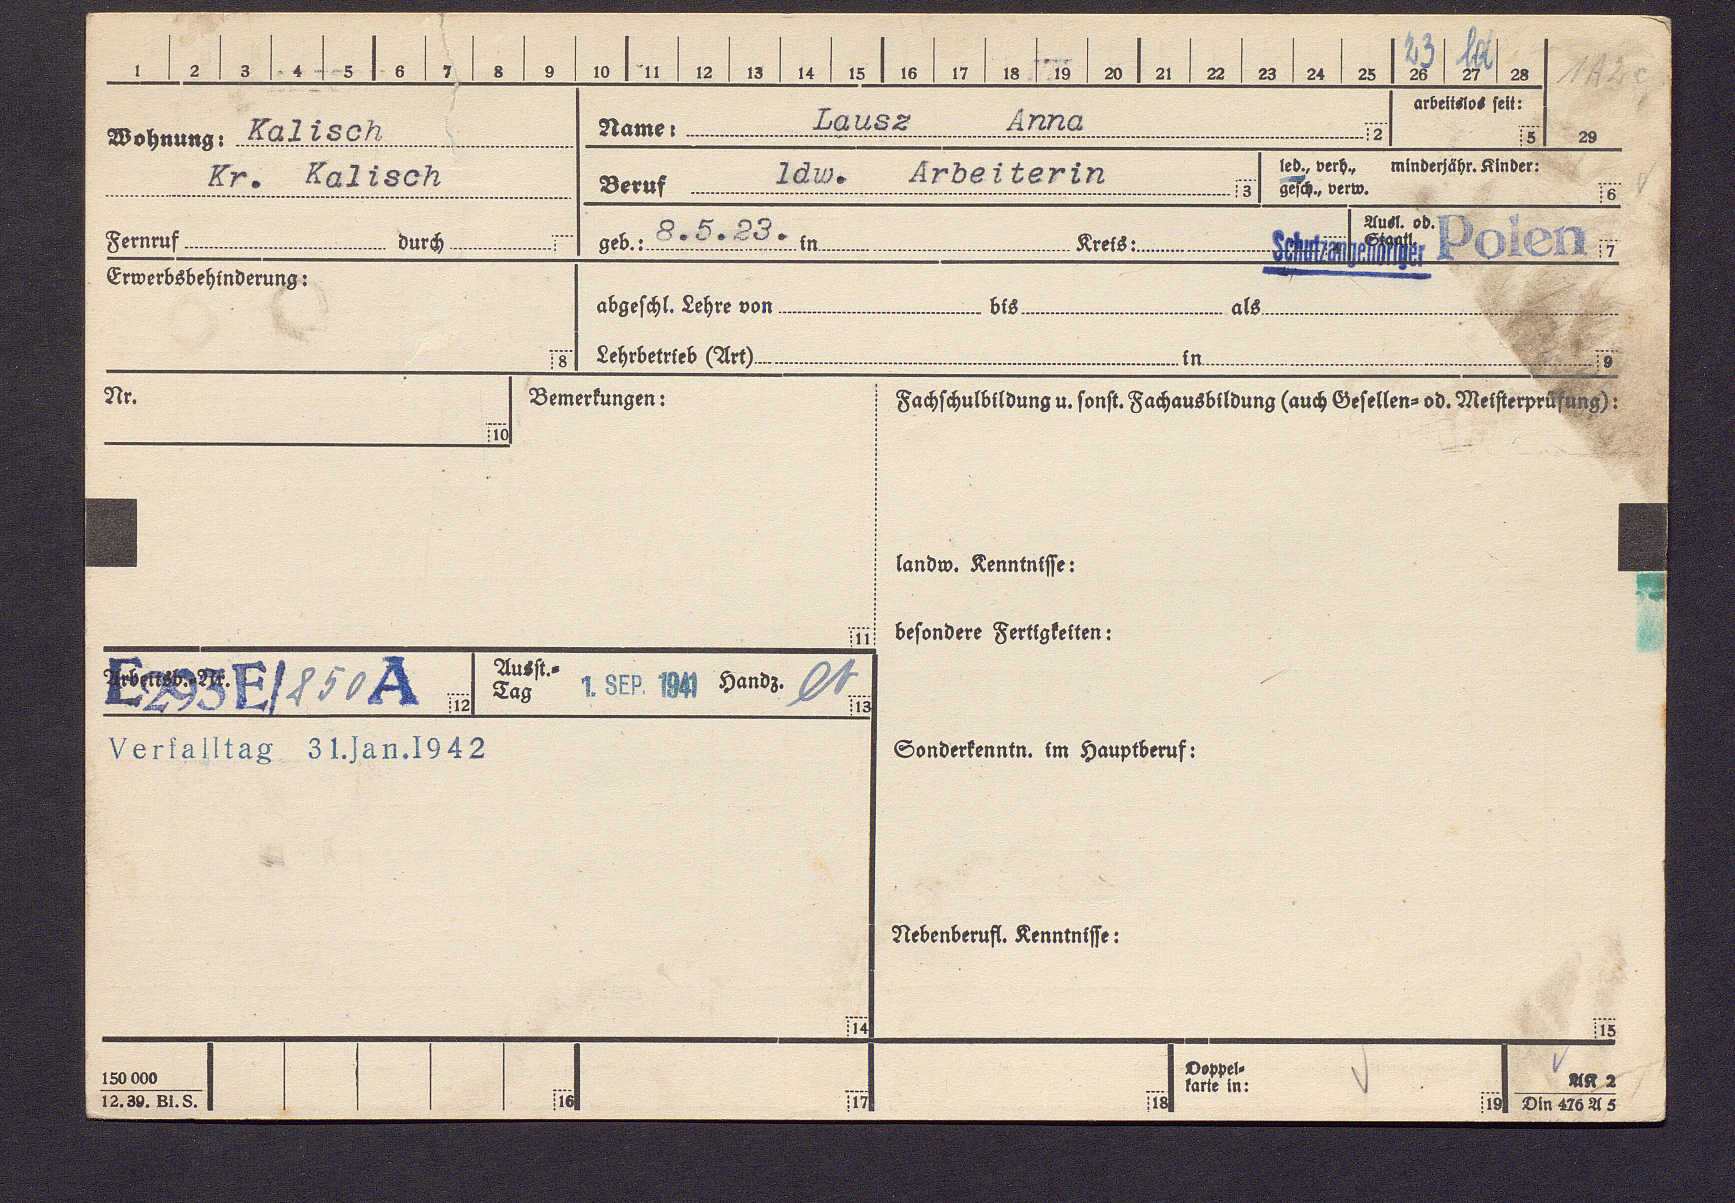 1 2 3 4 5 6 7 8 9 10 11 12 13 14 15 16 17 18 19 20 21 22 23 24 25 26 27 28
23 ld
Wohnung: Kalisch
Kr. Kalisch
Fernruf durch
Name: Lausz Anna 2
arbeitslos seit: 5
29
Beruf ldw. Arbeiterin 3
led., verh., minderjähr. Kinder:
gesch., verw. 6
geb.: 8.5.23. in Kreis: 4
Schutzangehöriger
Ausl. od.
Staatl. Polen 7
Erwerbsbehinderung:
8
abgeschl. Lehre von bis als
Lehrbetrieb (Art) in 9
Nr.
10
Bemerkungen:
11
Fachschulbildung u. sonst. Fachausbildung (auch Gesellen- od. Meisterprüfung):
landw. Kenntnisse:
besondere Fertigkeiten:
Arbeitsb.-Nr. E293E/850 A 12
Ausst.-
Tag 1. SEP. 1941 Handz. 13
Verfalltag 31.Jan.1942
14
Sonderkenntn. im Hauptberuf:
Nebenberufl. Kenntnisse:
15
150 000
12. 39. Bl. S.
16
17
18
Doppel-
karte in:
19
AK 2
Din 476 A 5